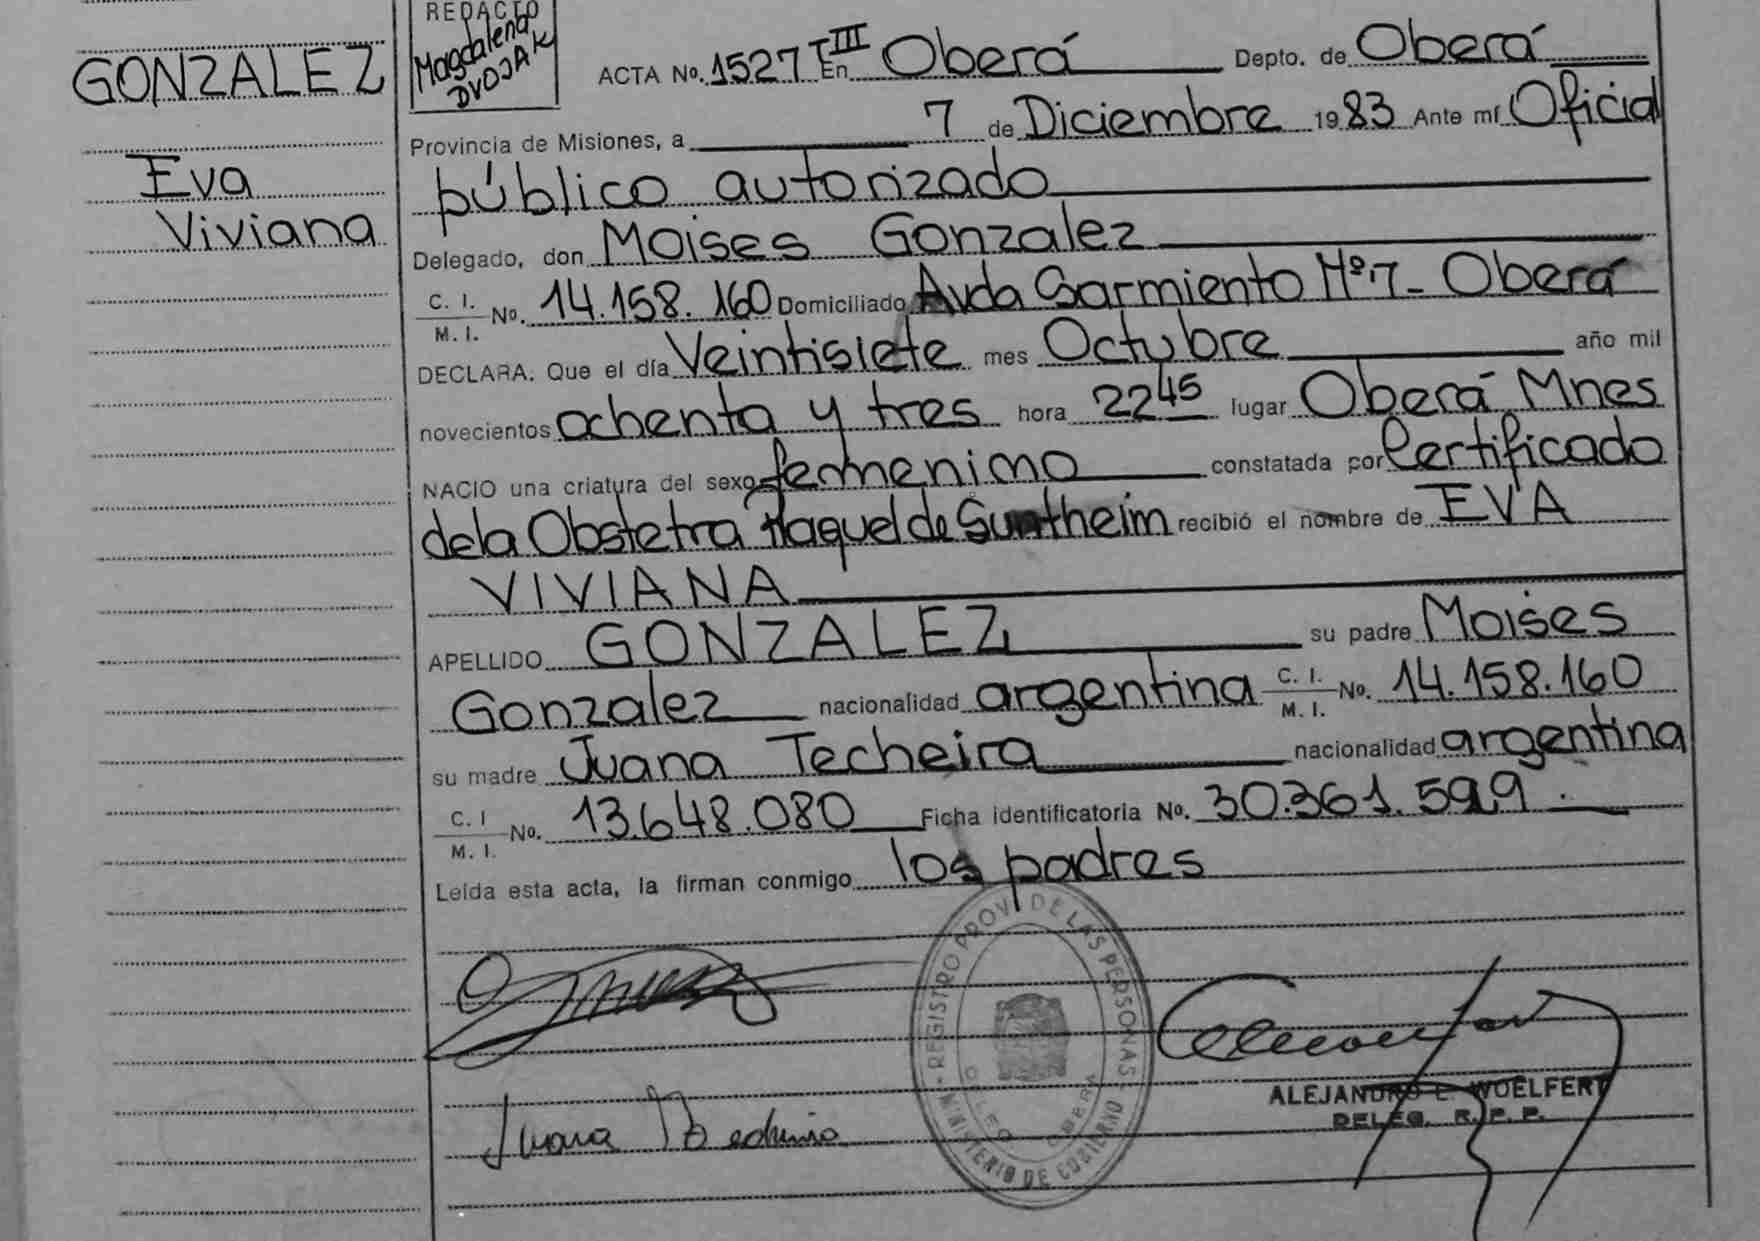 GONZALEZ
Eva
Viviana
REDACTO
Magdalena
DVOJAK
ACTA No. 1527 T III En Oberá Depto. de Oberá
Provincia de Misiones, a 7 de Diciembre 1983 Ante mí Oficial
público autorizado
Delegado, don Moises Gonzalez
C. I. / M. I. No. 14.158.160 Domiciliado Avda Sarmiento Nº 7 - Oberá
DECLARA: Que el día Veintisiete mes Octubre año mil
novecientos ochenta y tres hora 22 45 lugar Oberá Mnes
NACIO una criatura del sexo femenino constatada por Certificado
de la Obstetra Raquel de Suntheim recibió el nombre de EVA
VIVIANA
APELLIDO GONZALEZ su padre Moises
Gonzalez nacionalidad argentina C. I. / M. I. No. 14.158.160
su madre Juana Techeira nacionalidad argentina
C. I / M. I. No. 13.648.080 Ficha identificatoria No. 30.361.599.
Leida esta acta, la firman conmigo los padres
REGISTRO PROV. DE LAS PERSONAS
MINISTERIO DE GOBIERNO
OBERA
ALEJANDRO E. WOELFERT
DELEG. R. P. P.
Juana